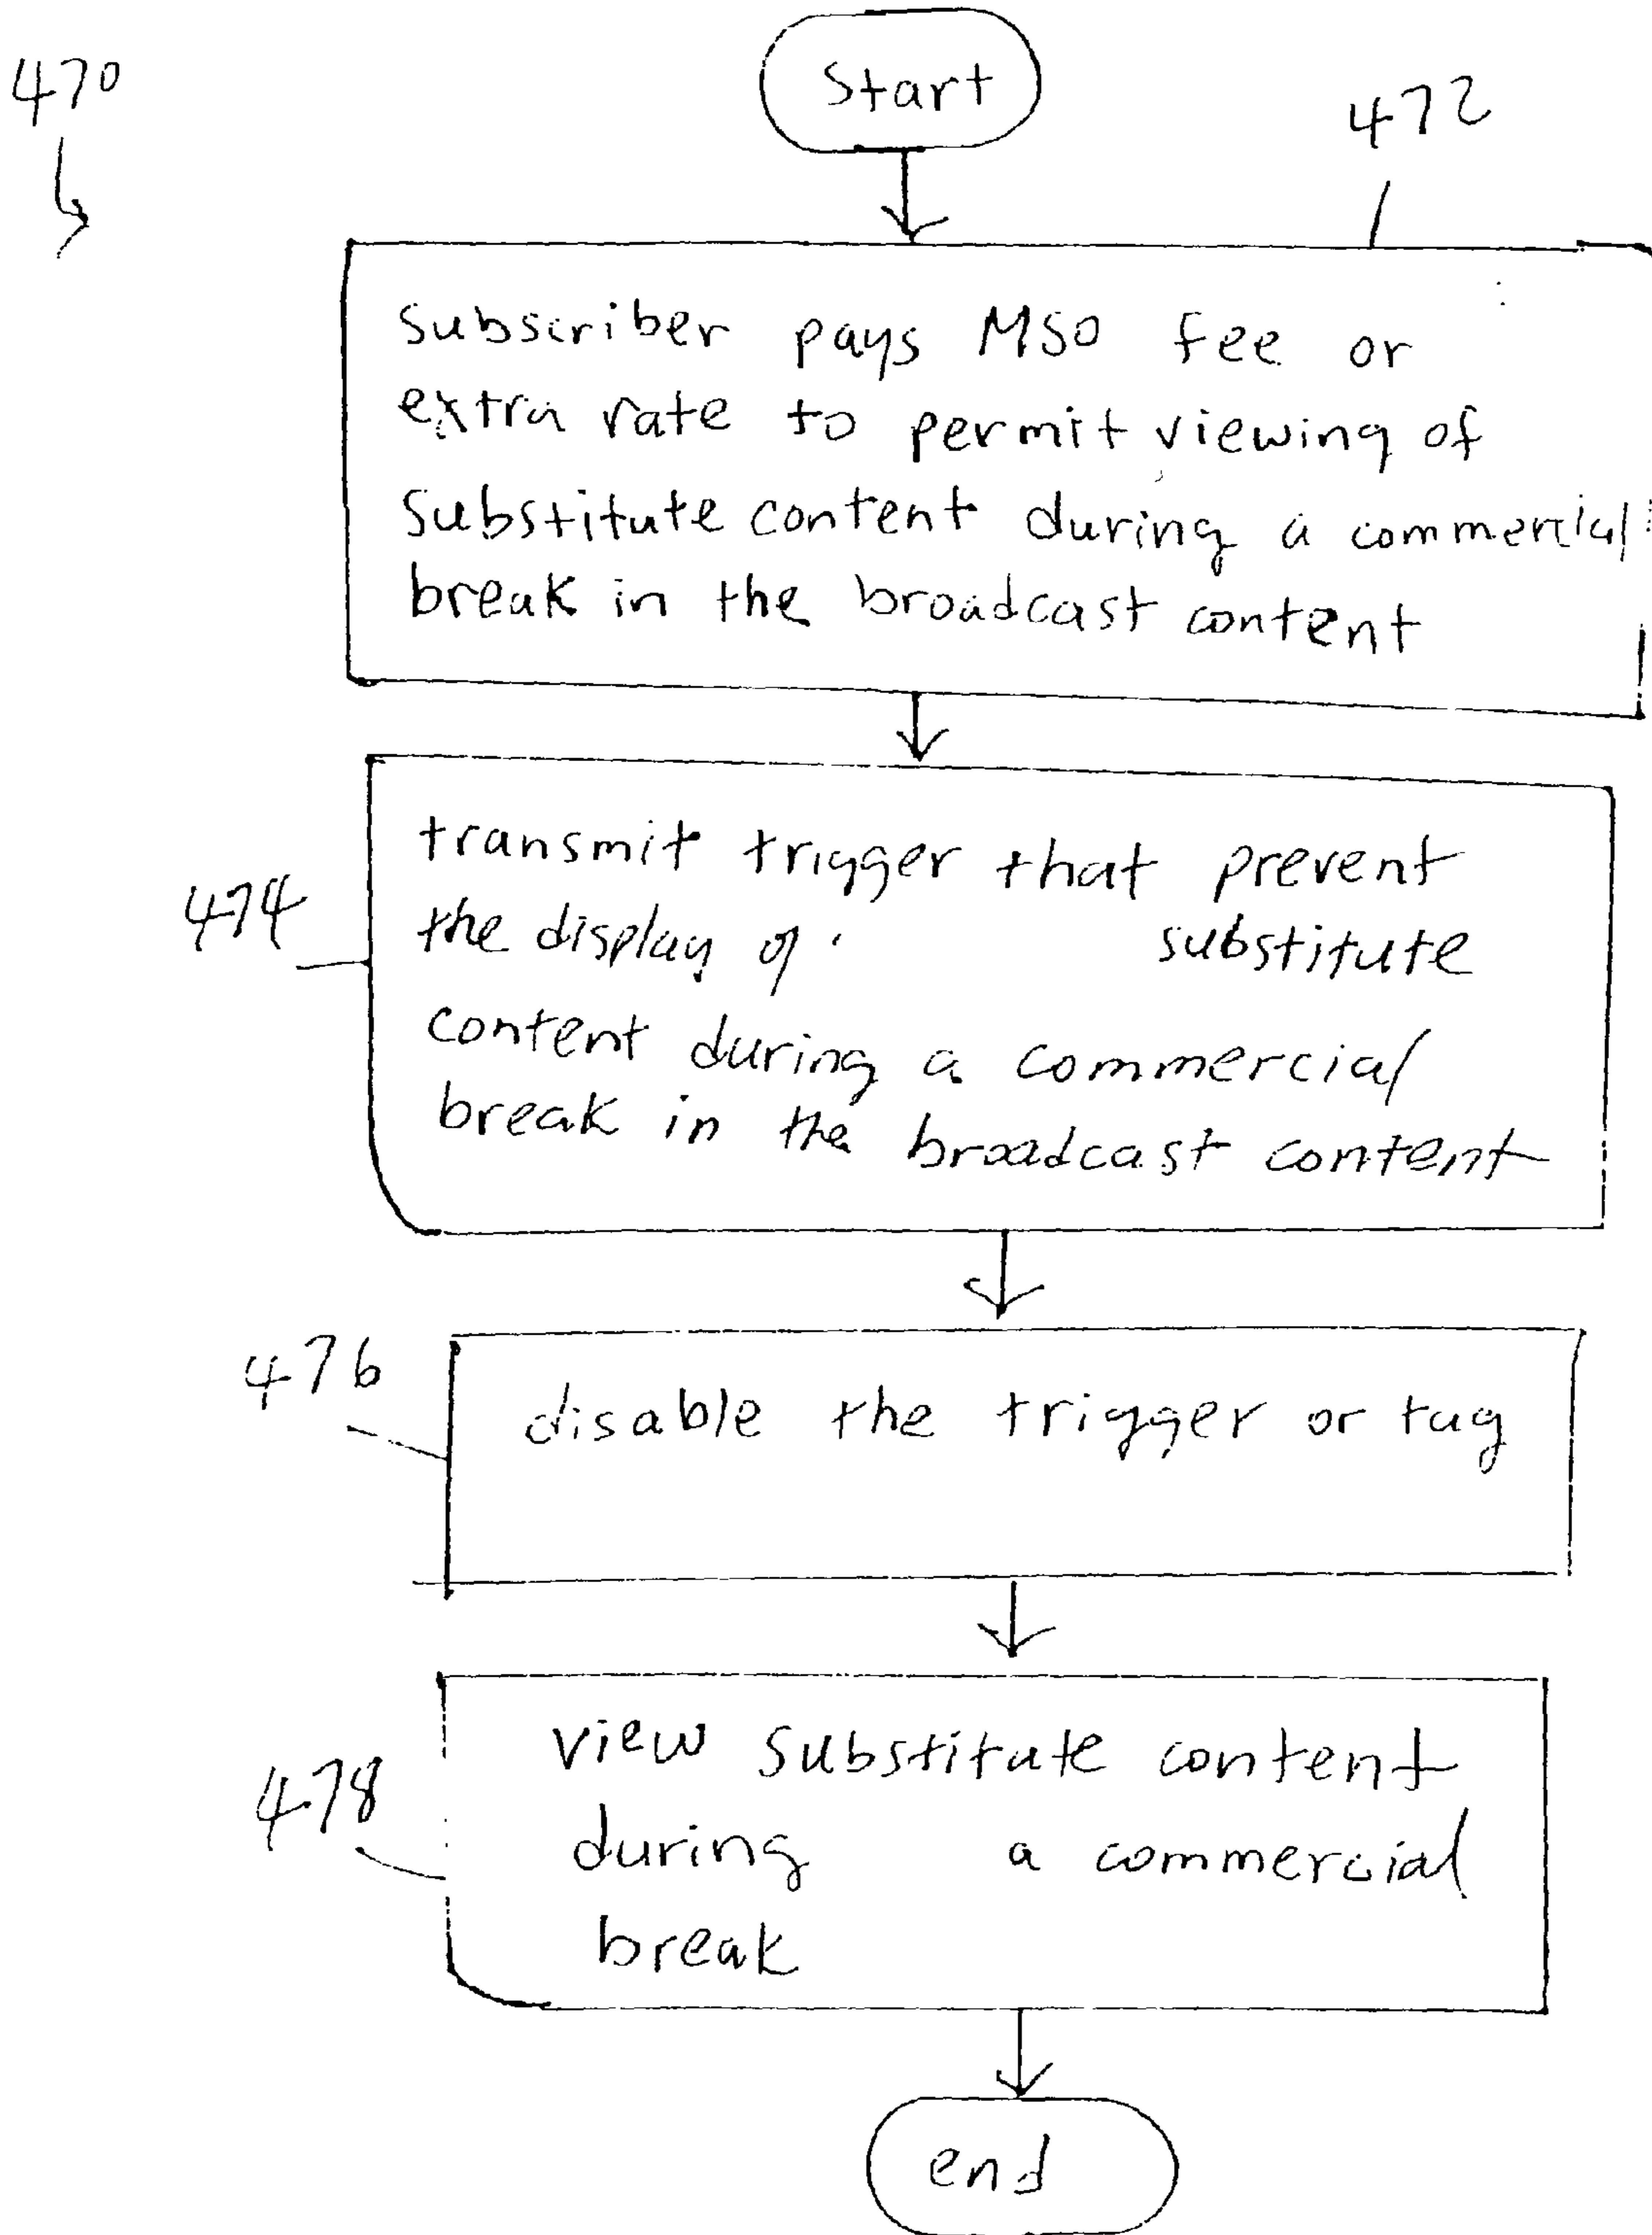 470
Start
472
subscriber pays MSO fee or
extra rate to permit viewing of
substitute content during a commercial
break in the broadcast content
474
transmit trigger that prevent
the display of substitute
content during a commercial
break in the broadcast content
476
disable the trigger or tag
478
view substitute content
during a commercial
break
end